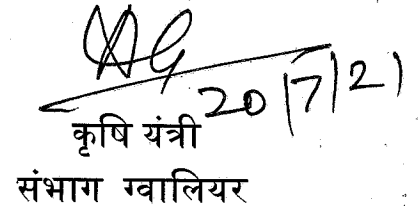 20/7/21
कृषि यंत्री
संभाग ग्वालियर